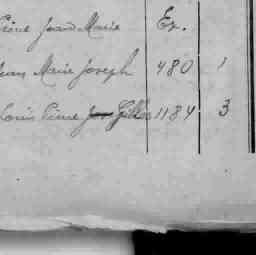 Pierre Jean Marie Ex.
Jean Marie Joseph 480 1
Louis Pierre Gilles 1134 3